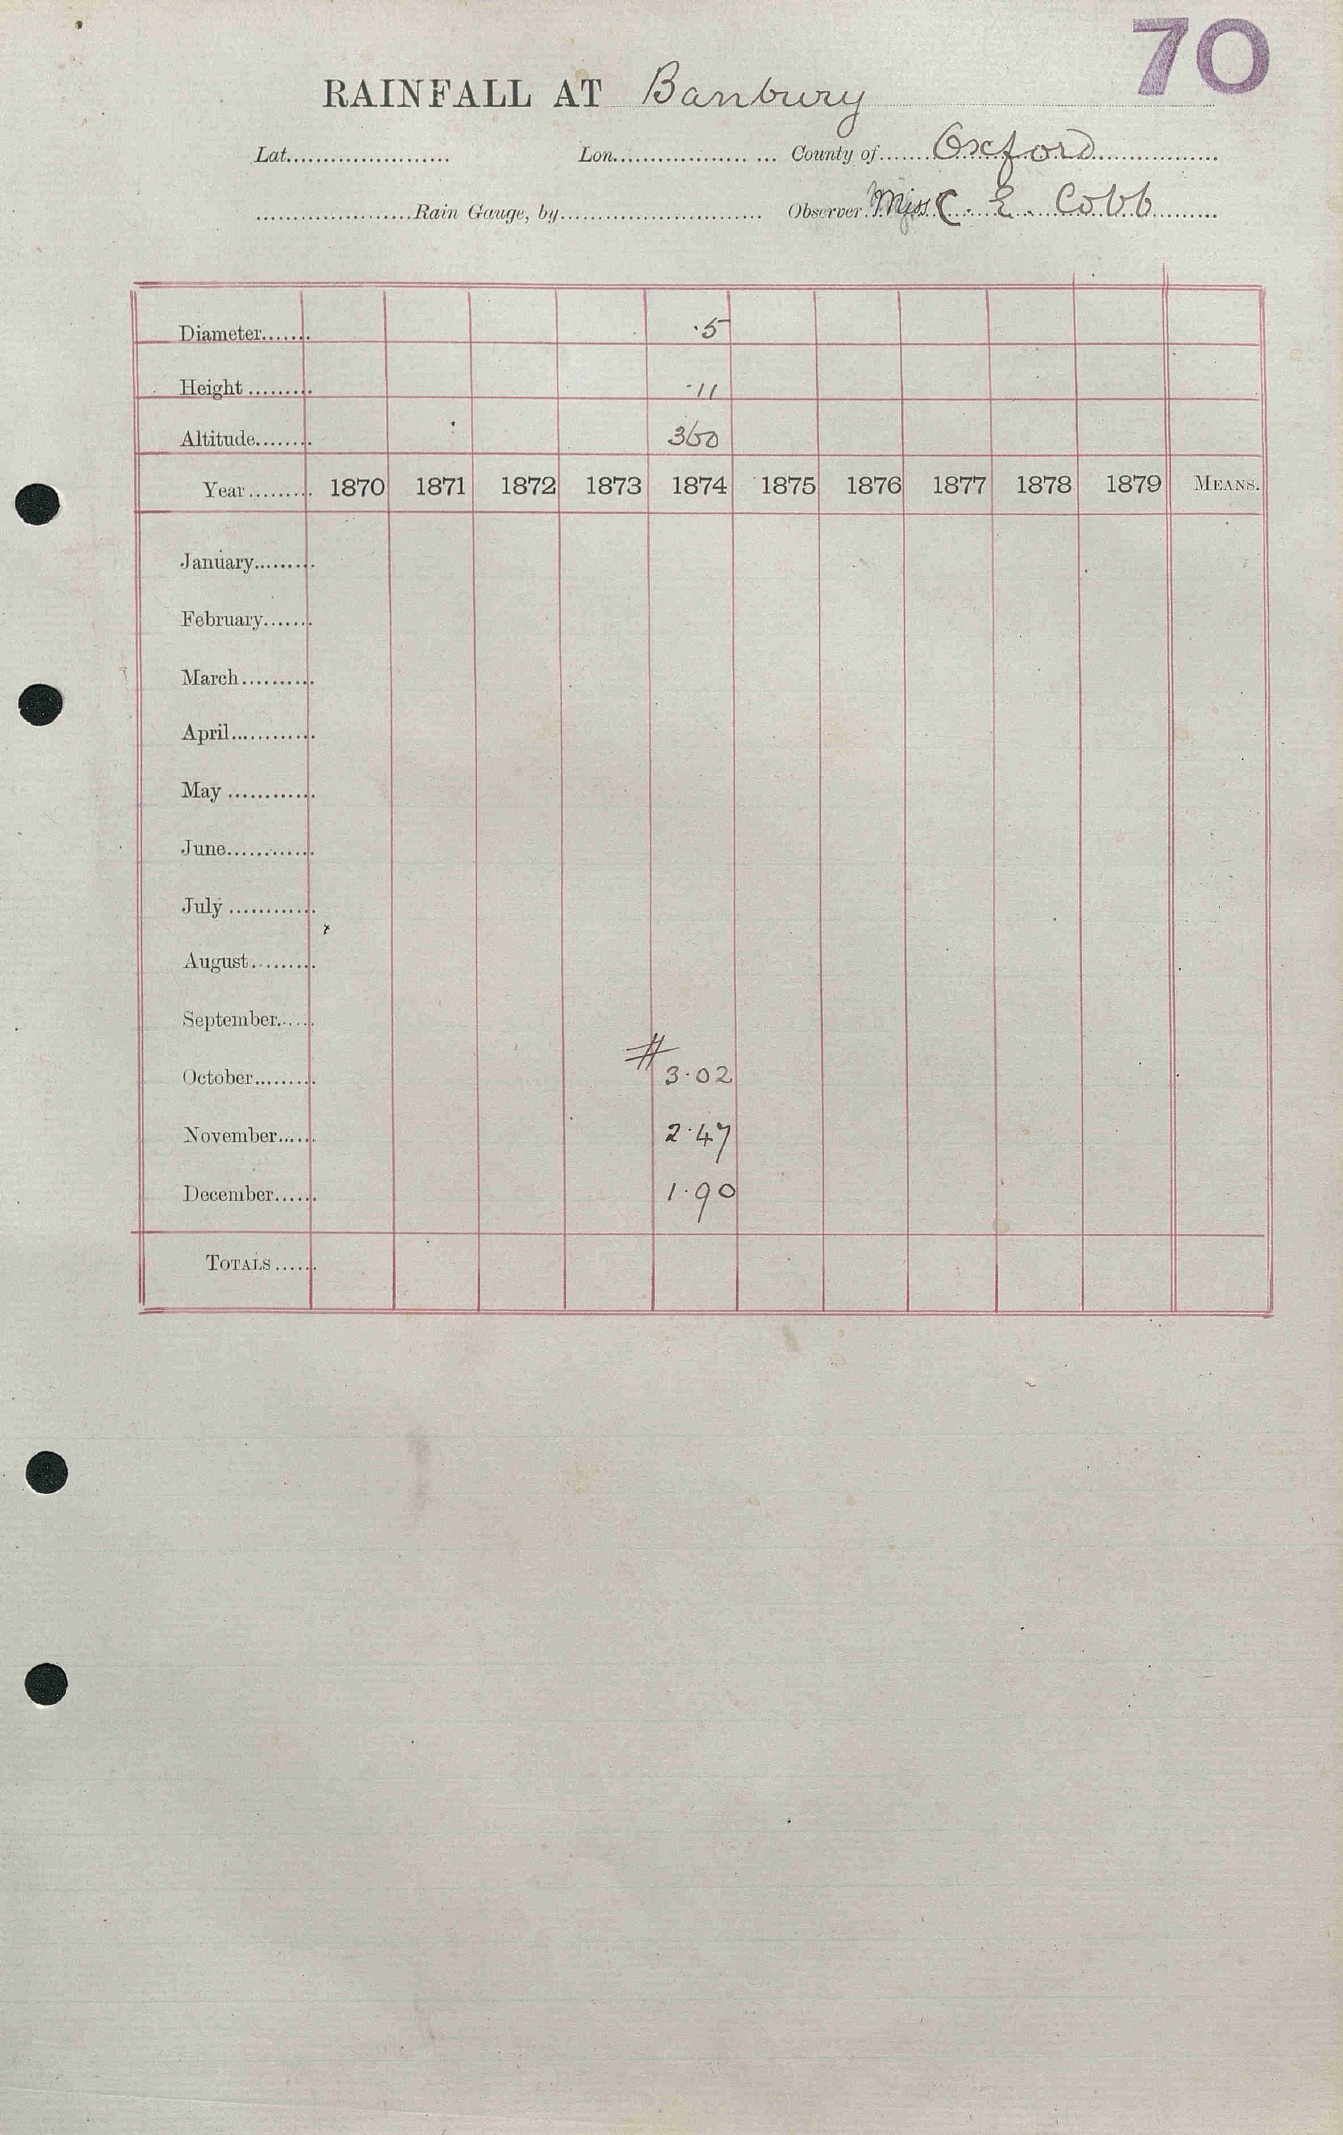 70
RAINFALL AT Banbury
Lat...................... Lon..................... County of Oxford
.....................Rain Gauge, by............................ Observer Miss C. E. Cobb
Diameter....... ·5
Height......... ·11
Altitude........ 360
Year......... 1870 1871 1872 1873 1874 1875 1876 1877 1878 1879 MEANS.
January.........
February.......
March..........
April............
May ............
June............
July ............
August.........
September.....
October......... # 3·02
November...... 2·47
December...... 1·90
TOTALS......